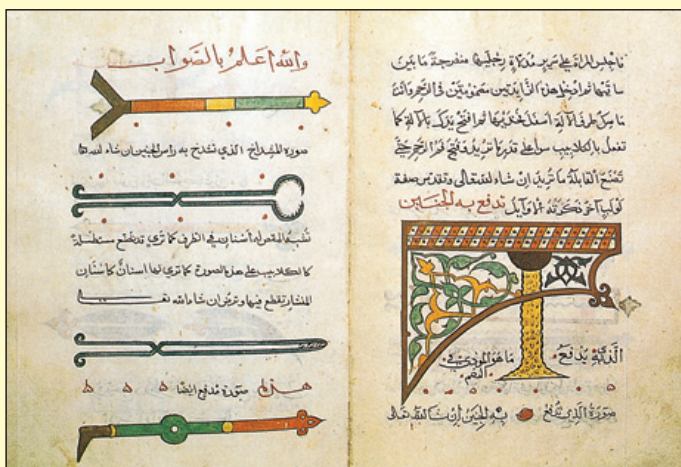 فاجلس المراة على سرير مدلاة رجليها منفرجة ما بين
ساقيها ثم ادخل هذين الزايدتين مضمومتين في الرحم وانت
ماسك طرف الآلة اسفل فخذيها ثم افتح يدك بالآلة كما
تفعل بالكلاليب سواء على قدر ما تريد من فتح فم الرحم حتى
تصنع القابلة ما تريد ان شاء الله تعالى وتقدس صفة
لولب آخر ذكرته الاوايل تدفع به الجنين
الذي يدفع
صورة الذي تدفع به الجنين ان شا الله تعالى
والله اعلم بالصواب
صورة المشداخ الذي تشدخ به راس الجنين ان شاء الله
تشبه المقص له اسنان في الطرف كما ترى قد تصنع مستطيلة
كالكلاليب على هذه الصورة كما ترى لها اسنان كاسنان
المنشار تقطع فيها وترض ان شاء الله
هذه صورة مدفع ايضا